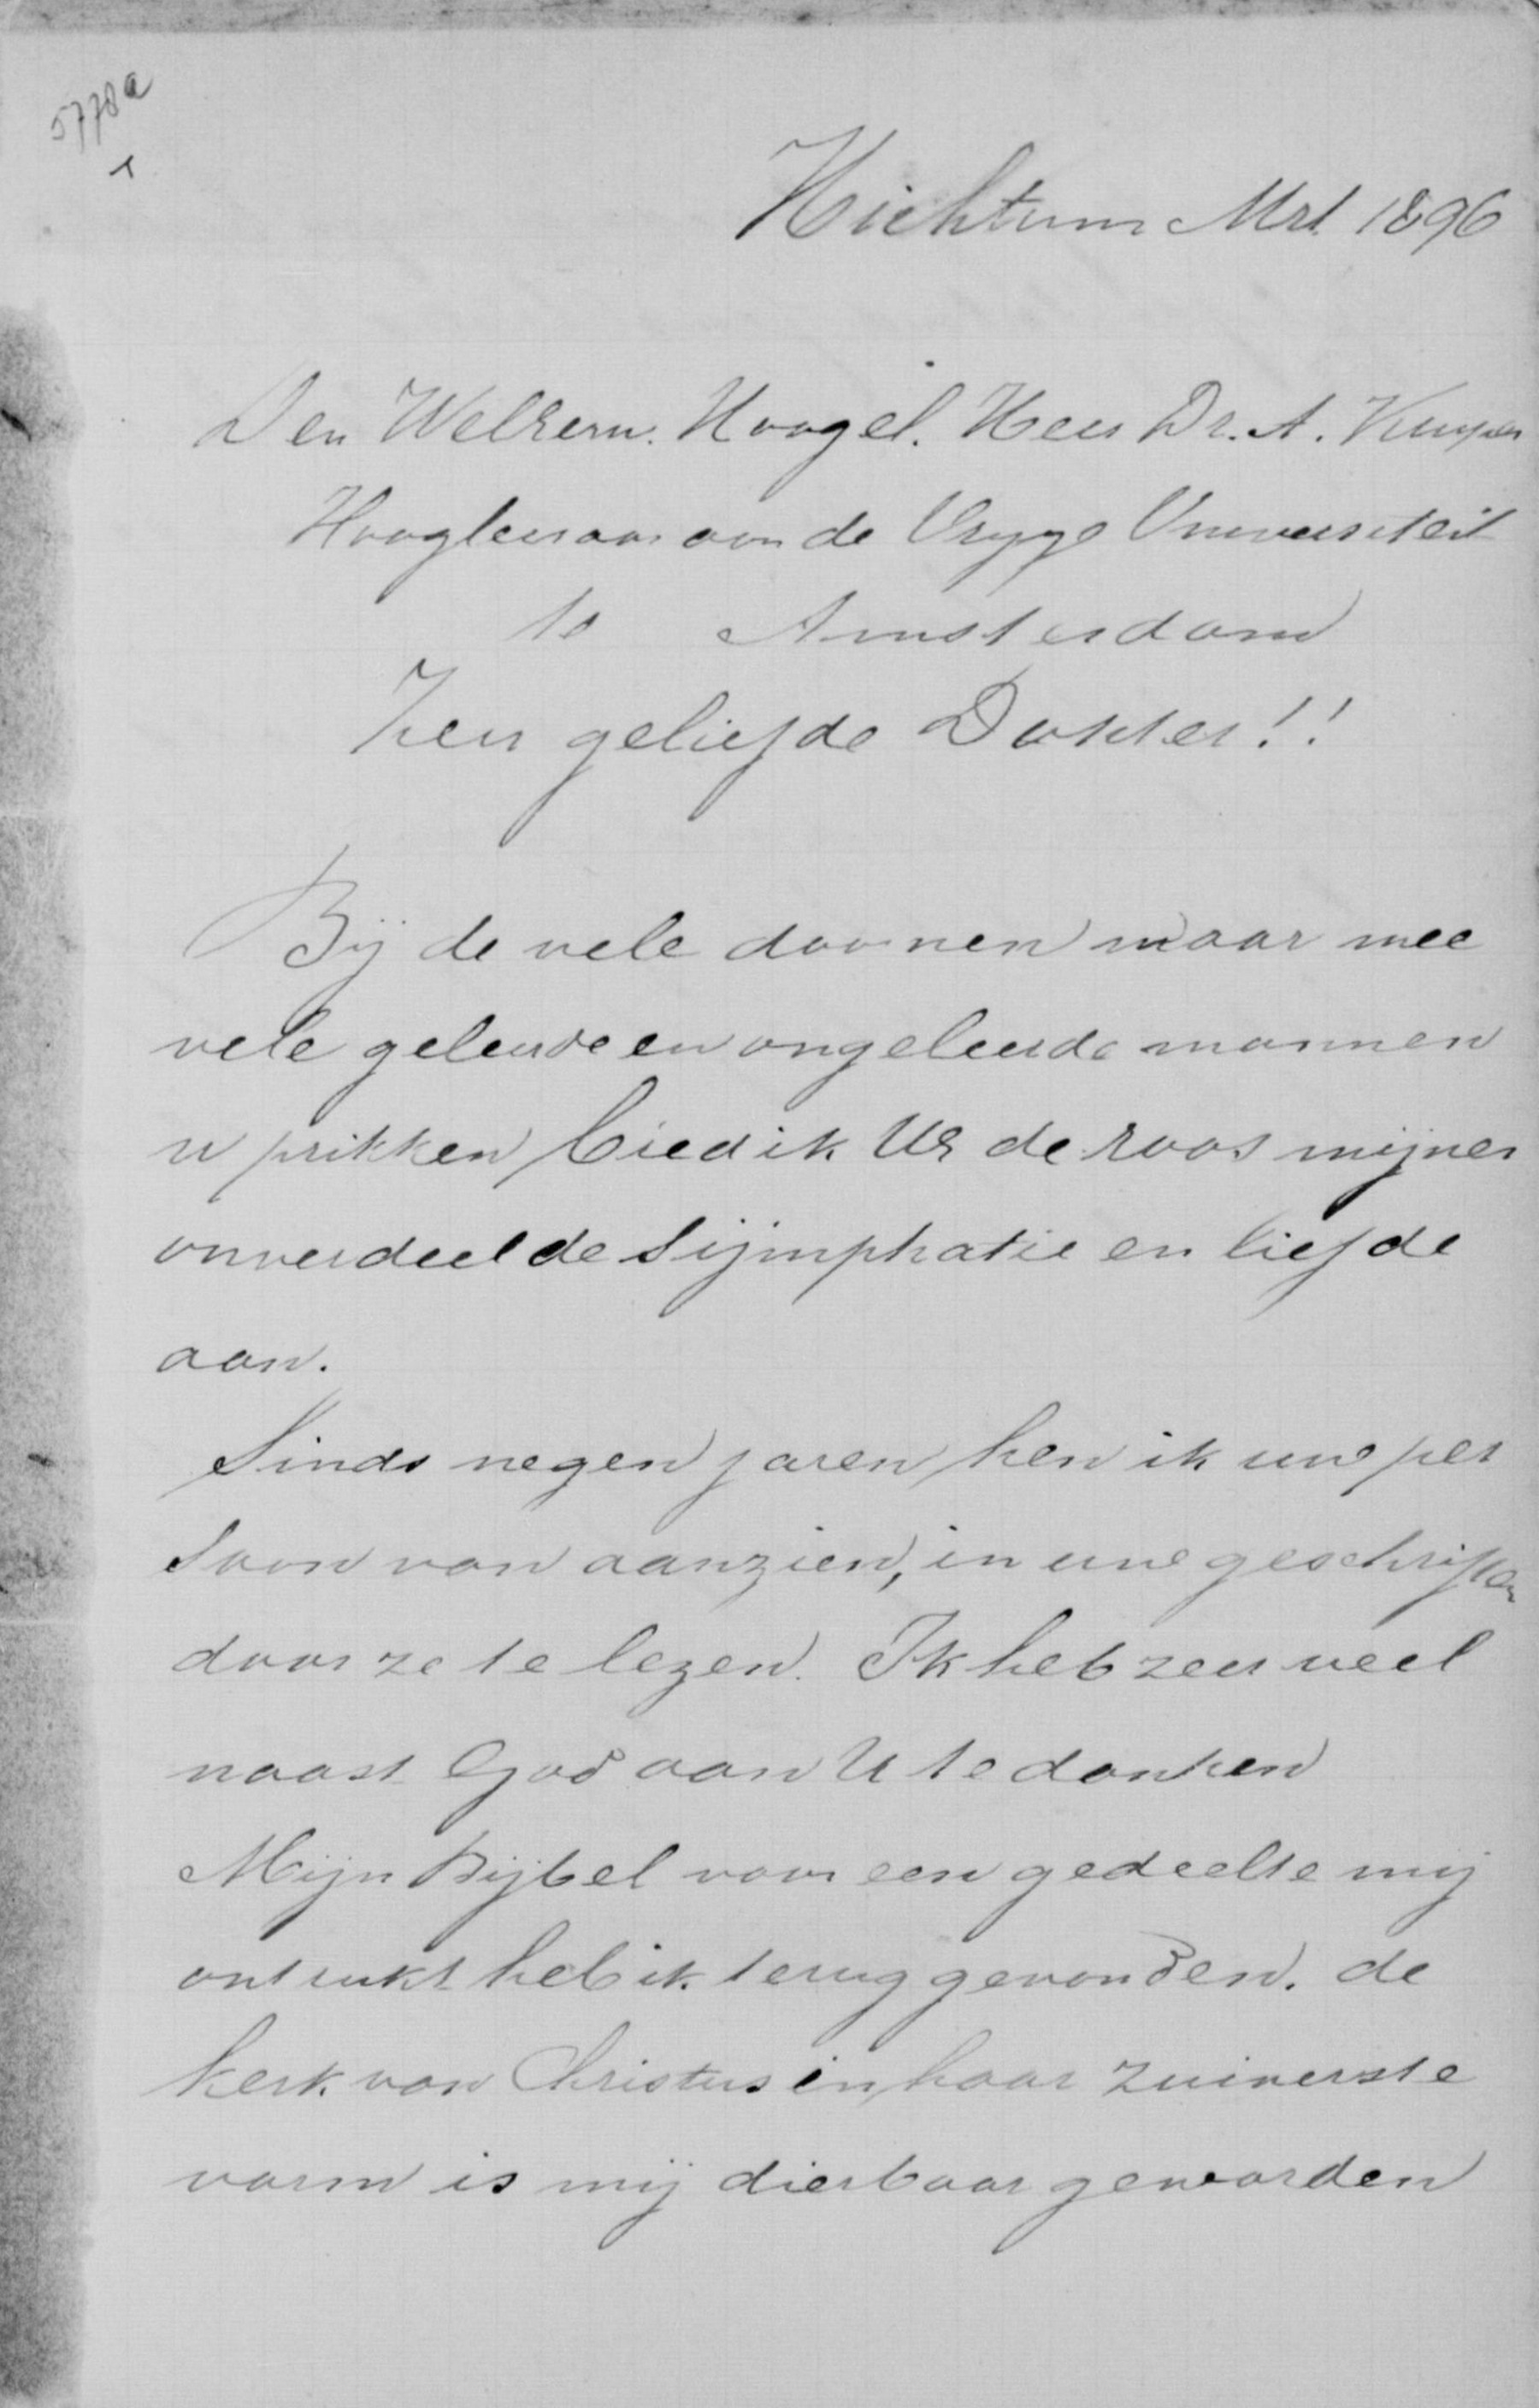 5778a
Hichtum Mrt 1896
Den WelEerw. Hoogel. Heer Dr. A. Kuyper
Hoogleeraar aan de Vryye Universiteit
te Amsterdam
Zeer geliefde Dokter!!
Bij de vele doornen waar mee
vele geleerde en ongeleerde mannen
u prikken bied ik UE de roos mijner
onverdeelde Sijmphatie en liefde
aan.
Sinds negen jaren ken ik uwe per
soon van aanzien, in uwe geschriften
door ze te lezen. Ik heb zeer veel
naast God aan U te danken
Mijn Bijbel voor een gedeelte mij
ontrukt heb ik terug gevonden. de
kerk van Christus in haar zuiverste
vorm is mij dierbaar geworden